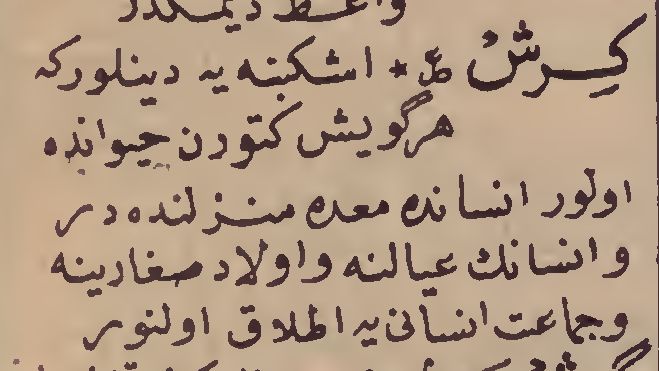 واعظ ديمكدر
كِرشُ اشكنبه يه دينلور كه
هر گويش كتورن حيوانده
اولور انسانده معده منزلنده در
و انسانك عيالنه و اولاد صغارينه
و جماعت انسانى يه اطلاق اولنور